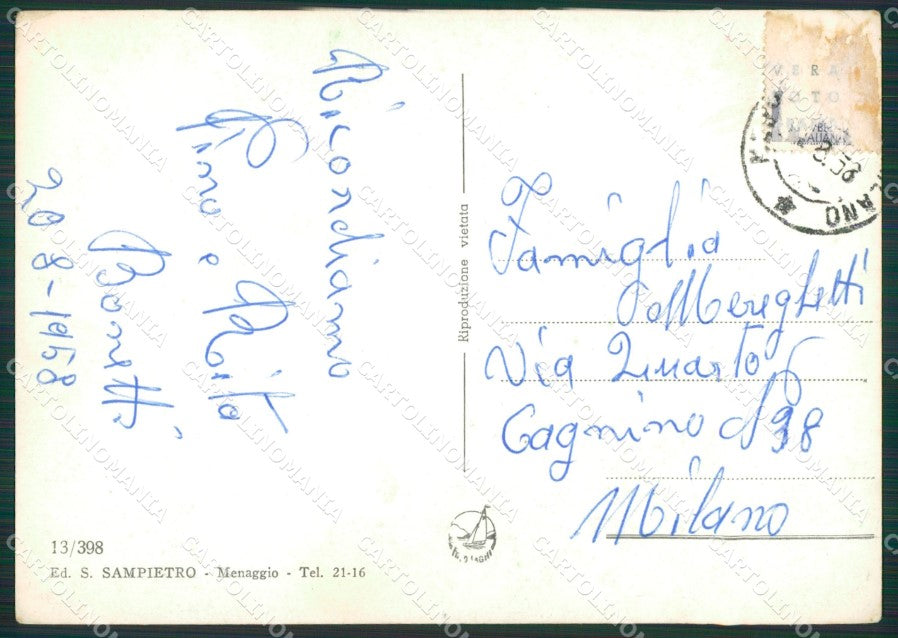 Ricordiamo
Pino e Rita
Bonetti
20-8-1958
Riproduzione vietata
VERA
FOTO
MILANO
Famiglia
Mereghetti
Via Quarto
Cagnino N 98
Milano
13/398
Ed. S. SAMPIETRO - Menaggio - Tel. 21-16
CARTOLINOMANIA